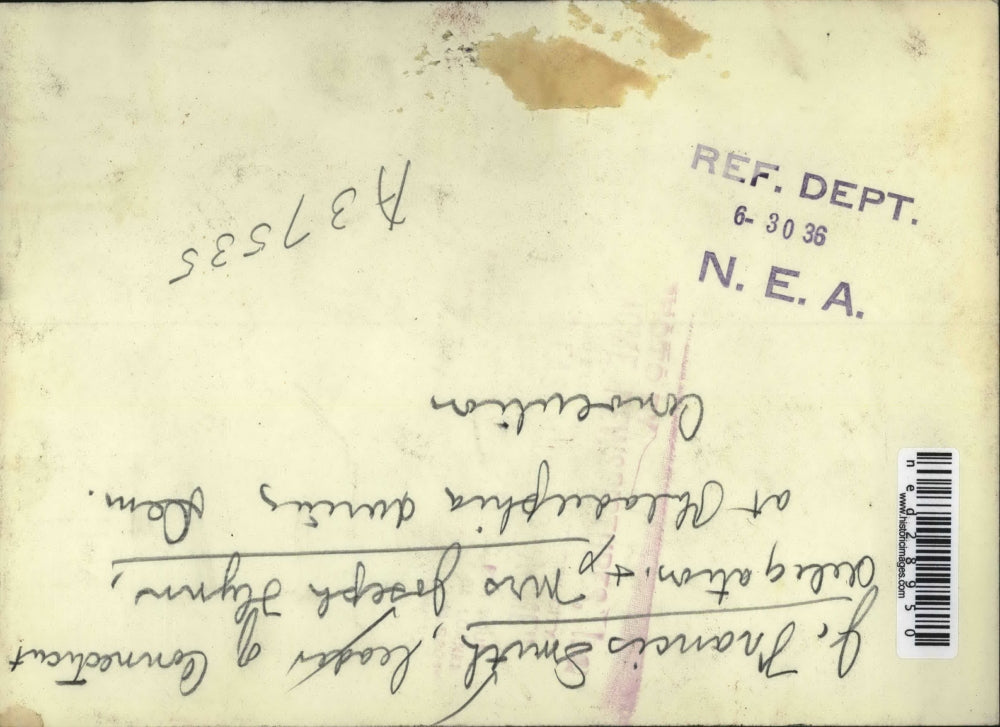 REF. DEPT.
6-30 36
N. E. A.
A37535
J. Francis Smith, leader of Connecticut
delegation. & Mrs Joseph Flynn,
at Philadelphia during Dem.
Convention
ned28950
www.historicimages.com